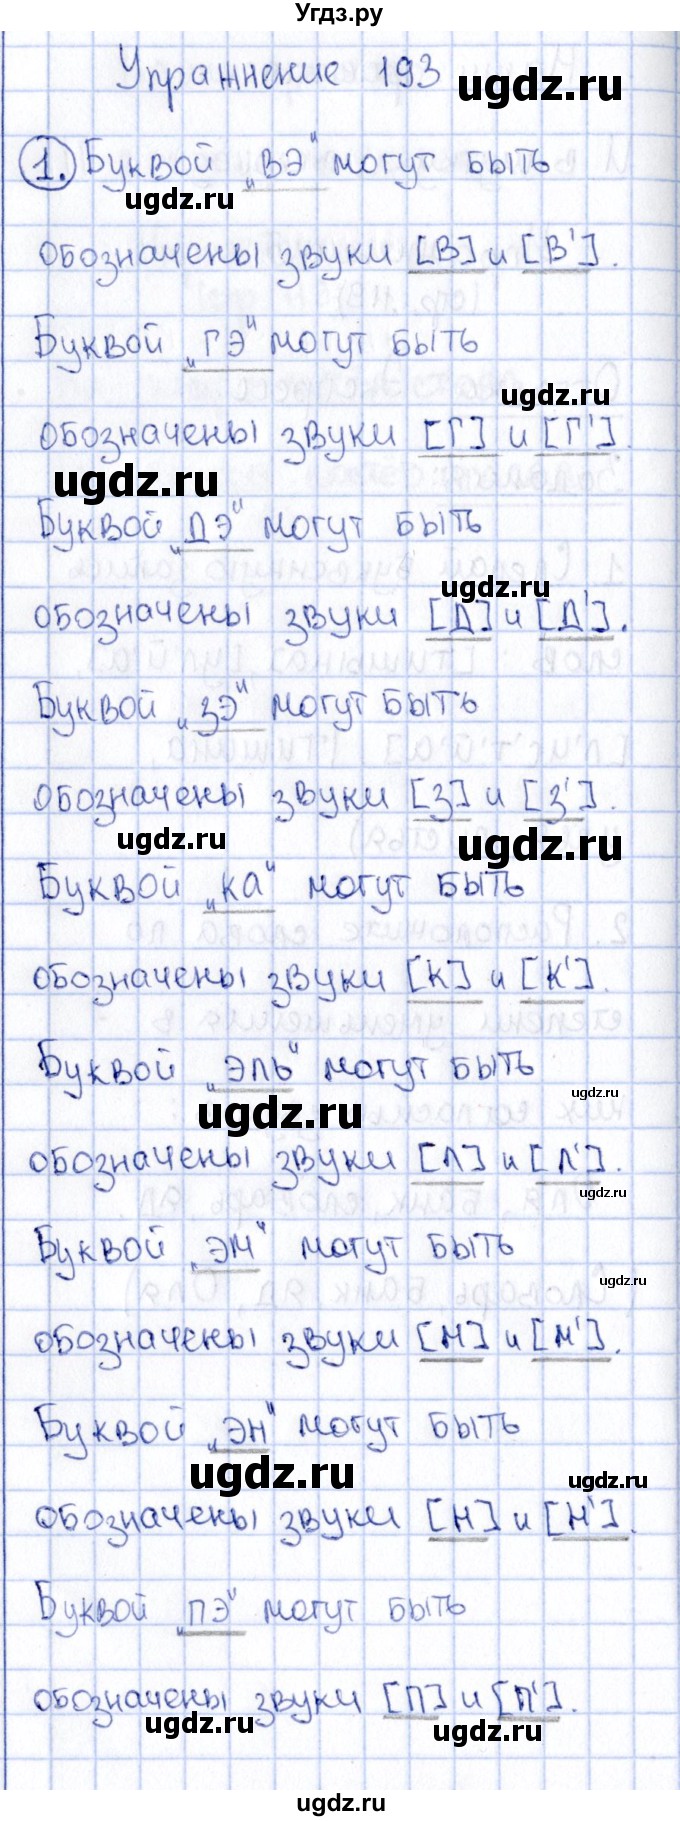 Угдз.ру
Упражнение 193
ugdz.ru
1. Буквой „ВЭ“ могут быть
ugdz.ru
обозначены звуки [В] и [В'].
Буквой „ГЭ“ могут быть
ugdz.ru
обозначены звуки [Г] и [Г'].
ugdz.ru
Буквой „ДЭ“ могут быть
ugdz.ru
обозначены звуки [Д] и [Д'].
Буквой „ЗЭ“ могут быть
обозначены звуки [З] и [З'].
ugdz.ru
ugdz.ru
Буквой „КА“ могут быть
обозначены звуки [К] и [К'].
Буквой „ЭЛЬ“ могут быть
ugdz.ru
ugdz.ru
обозначены звуки [Л] и [Л'].
ugdz.ru
Буквой „ЭМ“ могут быть
ugdz.ru
обозначены звуки [М] и [М'].
Буквой „ЭН“ могут быть
ugdz.ru
ugdz.ru
обозначены звуки [Н] и [Н'].
Буквой „ПЭ“ могут быть
обозначены звуки [П] и [П'].
ugdz.ru
ugdz.ru
ugdz.ru